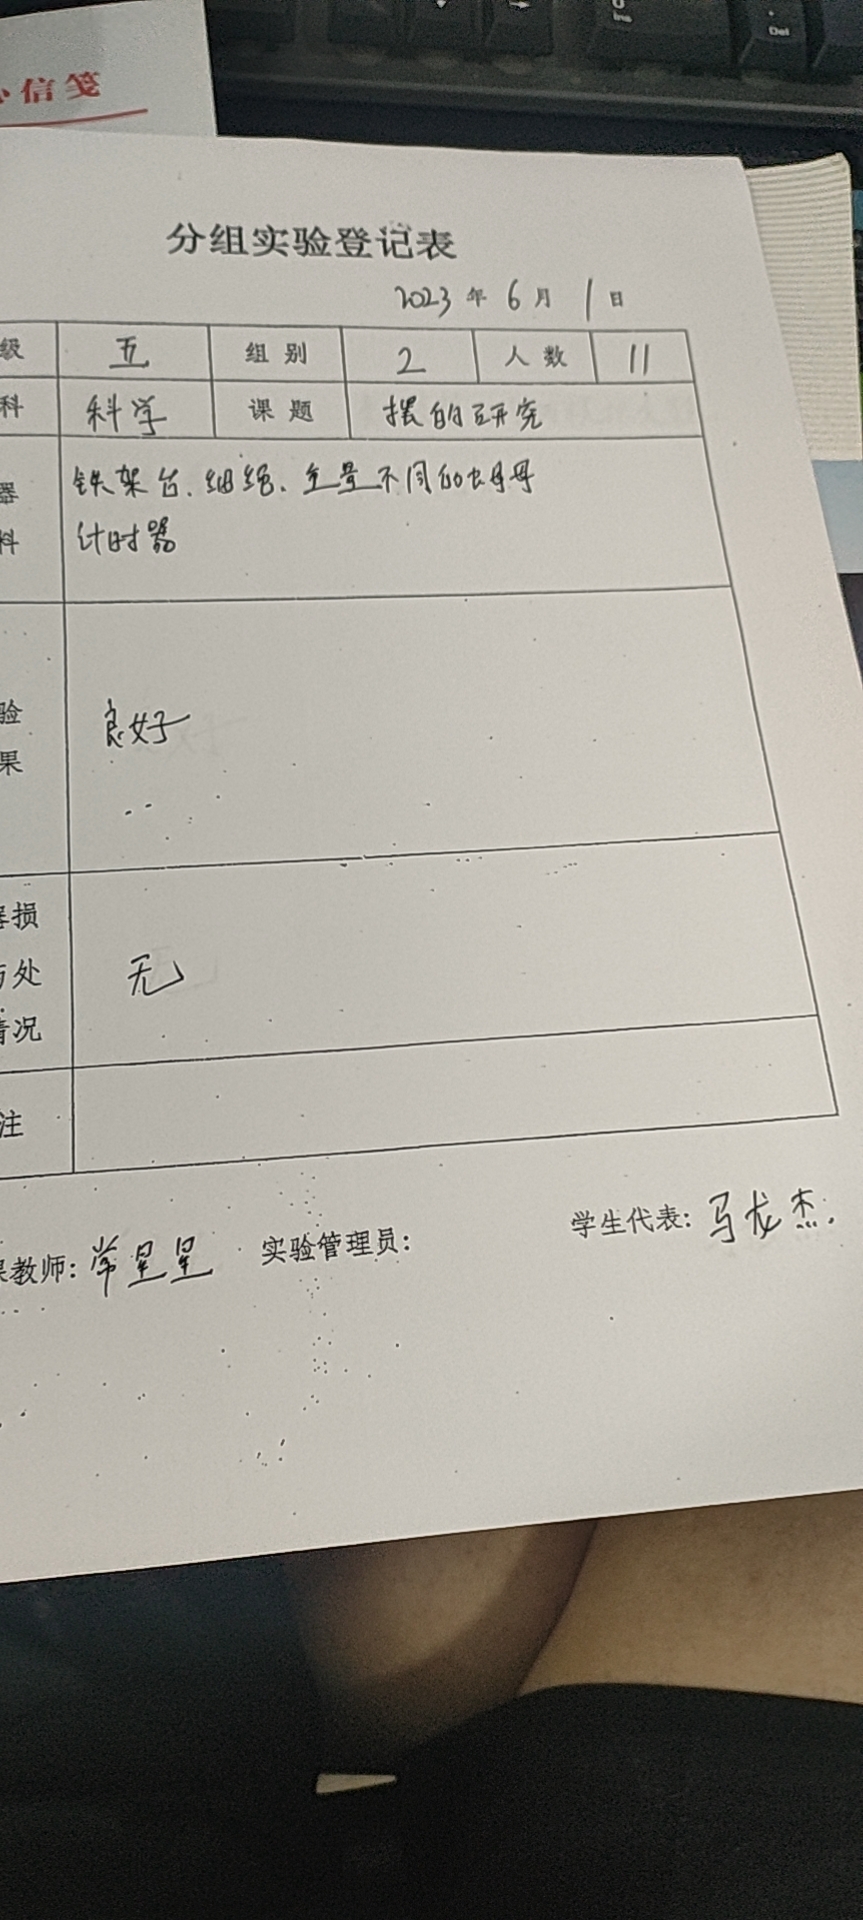 信笺
Ins
Del
分组实验登记表
2023 年 6 月 1 日
级 五 组别 2 人数 11
科 科学 课题 摆的研究
器 铁架台、细绳、重量不同的螺母
料 计时器
验 良好
果
损
处 无
情况
注
教师：常星星 实验管理员： 学生代表：马龙杰